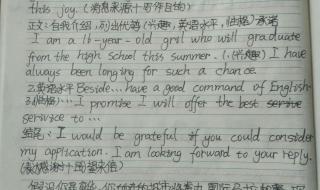 this joy. (消息来源+写作目的)
正文:自我介绍,列出优势(兴趣,英语水平,性格)承诺
I am a 16-year-old gril who will graduate
from the high school this summer. 1.(兴趣) I have
always been longing for such a chance.
2.英语水平 Beside...have a good command of English.
3.(性格)... I promise I will offer the best service
service to...
结尾: I would be grateful if you could consider
my application. I am looking forward to your reply.
(表感谢+盼望来信)
假设你是